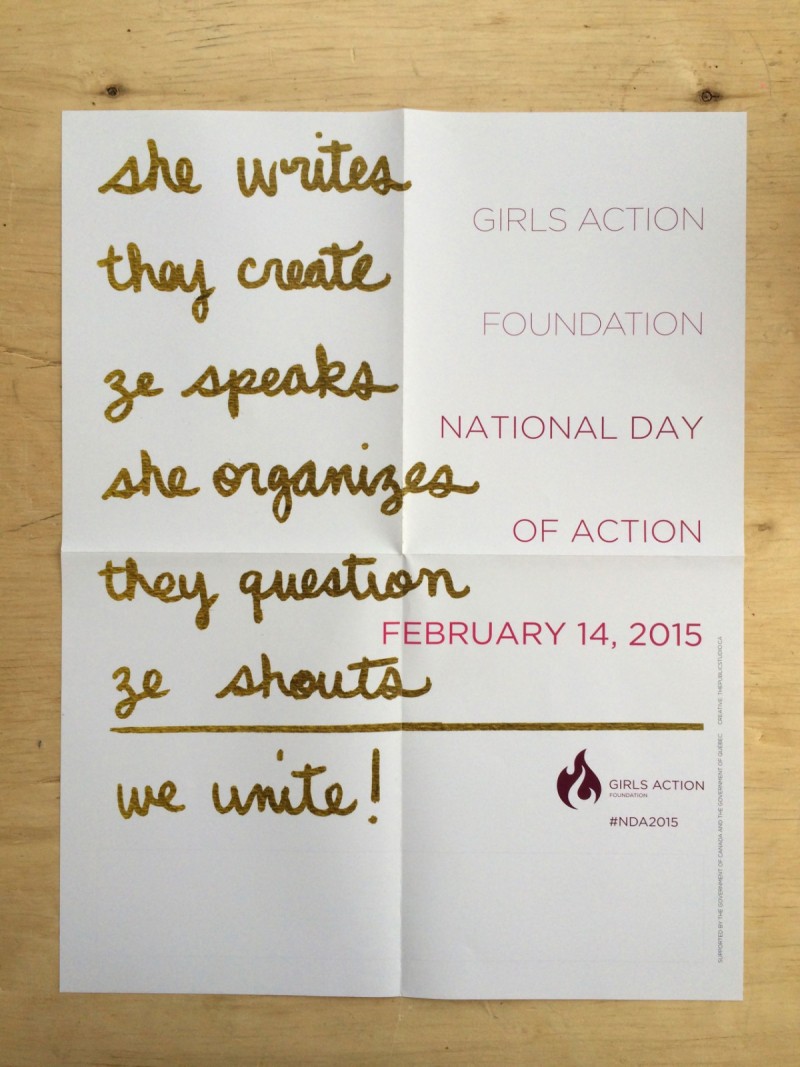 she writes
GIRLS ACTION
they create
FOUNDATION
ze speaks
NATIONAL DAY
she organizes
OF ACTION
they question
FEBRUARY 14, 2015
ze shouts
we unite!
GIRLS ACTION
FOUNDATION
#NDA2015
SUPPORTED BY THE GOVERNMENT OF CANADA AND THE GOVERNMENT OF QUÉBEC CREATIVE: THEPUBLICSTUDIO.CA